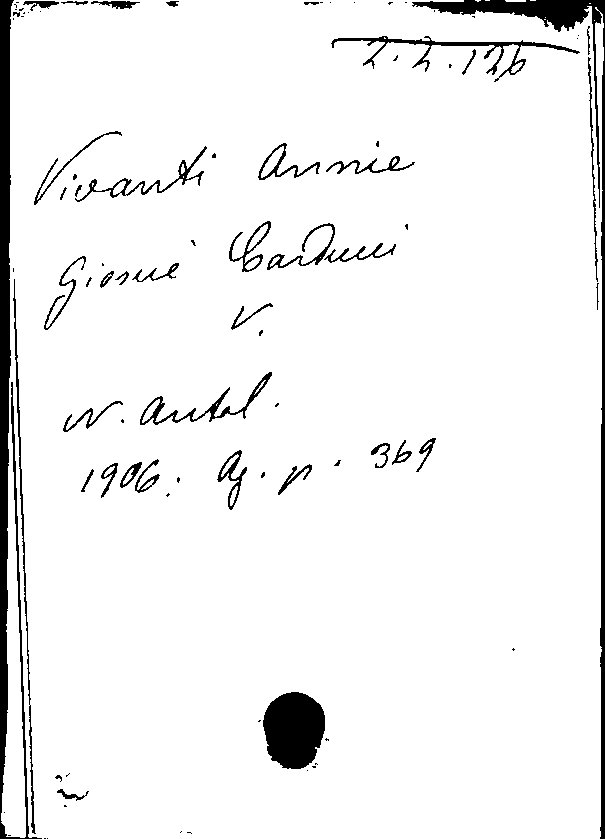 2.2.126
Vivanti Annie
Giosuè Carducci
V.
N. Antol.
1906. Ag. p. 369